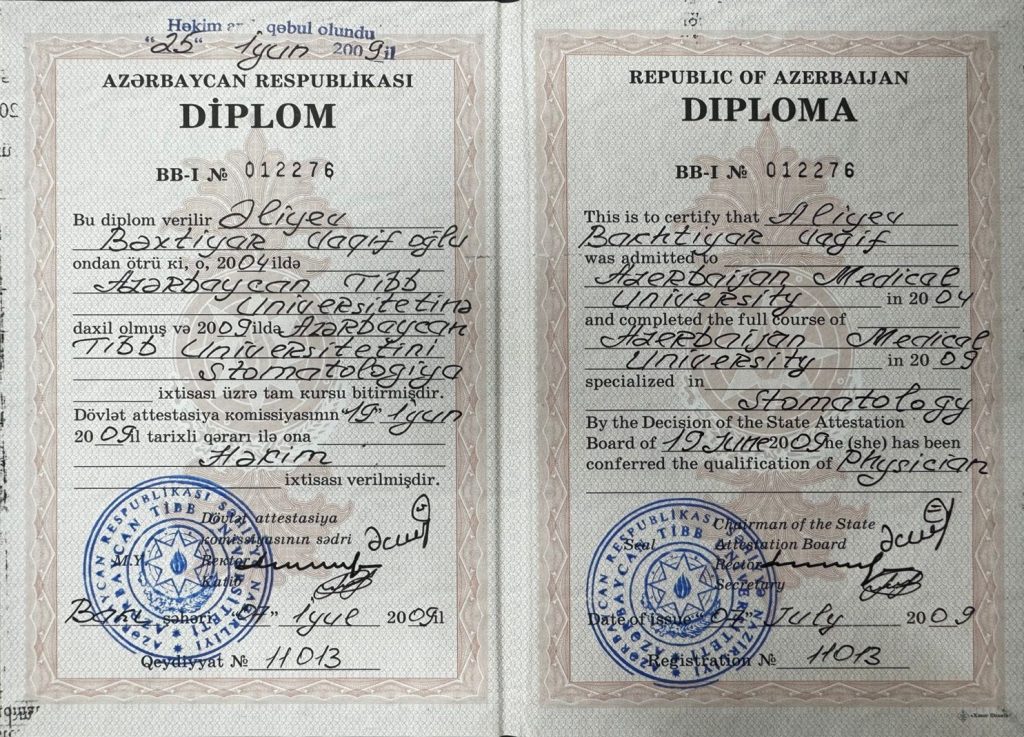 Həkim qəbul olundu
"25" İyun 2009 il
AZƏRBAYCAN RESPUBLİKASI
DİPLOM
BB-I № 012276
Bu diplom verilir Əliyev
Bəxtiyar Vaqif oğlu
ondan ötrü ki, o, 2004 ildə
Azərbaycan Tibb
Universitetinə
daxil olmuş və 2009 ildə Azərbaycan
Tibb Universitetini
Stomatologiya
ixtisası üzrə tam kursu bitirmişdir.
Dövlət attestasiya komissiyasının 19 iyun
2009 il tarixli qərarı ilə ona
Həkim
ixtisası verilmişdir.
Dövlət attestasiya
komissiyasının sədri
M.Y. Rektor
Katib
Bakı şəhəri "07" iyul 2009 il
Qeydiyyat № 11013
AZƏRBAYCAN RESPUBLİKASI SƏHİYYƏ NAZİRLİYİ
AZƏRBAYCAN TİBB UNİVERSİTETİ
REPUBLIC OF AZERBAIJAN
DIPLOMA
BB-I № 012276
This is to certify that Aliyev
Bakhtiyar Vagif
was admitted to
Azerbaijan Medical
University in 2004
and completed the full course of
Azerbaijan Medical
University in 2009
specialized in
Stomatology
By the Decision of the State Attestation
Board of 19 June 2009 he (she) has been
conferred the qualification of Physician
Chairman of the State
Seal Attestation Board
Rector
Secretary
Date of issue "07" July 2009
Registration № 11013
AZƏRBAYCAN RESPUBLİKASI SƏHİYYƏ NAZİRLİYİ
AZƏRBAYCAN TİBB UNİVERSİTETİ